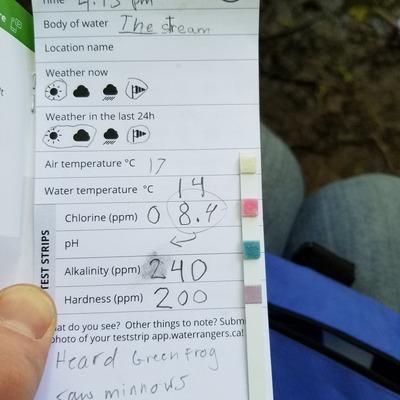 Time 4:15 pm
Body of water The stream
Location name
Weather now
Weather in the last 24h
Air temperature °C 17
Water temperature °C 14
Chlorine (ppm) 0 8.4
pH
Alkalinity (ppm) 240
Hardness (ppm) 200
TEST STRIPS
at do you see? Other things to note? Subm
photo of your teststrip app.waterrangers.ca!
Heard Green frog
saw minnows